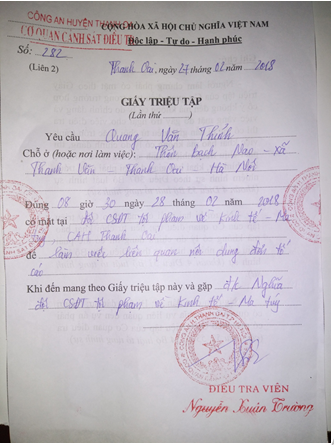 CÔNG AN HUYỆN THANH OAI
CỘNG HÒA XÃ HỘI CHỦ NGHĨA VIỆT NAM
CƠ QUAN CẢNH SÁT ĐIỀU TRA
Độc lập - Tự do - Hạnh phúc
Số: 282
(Liên 2)
Thanh Oai, ngày 27 tháng 02 năm 2018
GIẤY TRIỆU TẬP
(Lần thứ ......)
Yêu cầu Quang Văn
Chỗ ở (hoặc nơi làm việc): Thôn Bạch Nao - xã
Thanh Văn - Thanh Oai - Hà Nội
Đúng 08 giờ 30 ngày 28 tháng 02 năm 2018
có mặt tại đội CSĐT tội phạm về kinh tế - Ma
CAH Thanh Oai
để làm việc liên quan nội dung đơn tố
cáo
Khi đến mang theo Giấy triệu tập này và gặp đ/c Nghĩa
đội CSĐT tội phạm về kinh tế - Ma túy
ĐIỀU TRA VIÊN
Nguyễn Xuân Trường